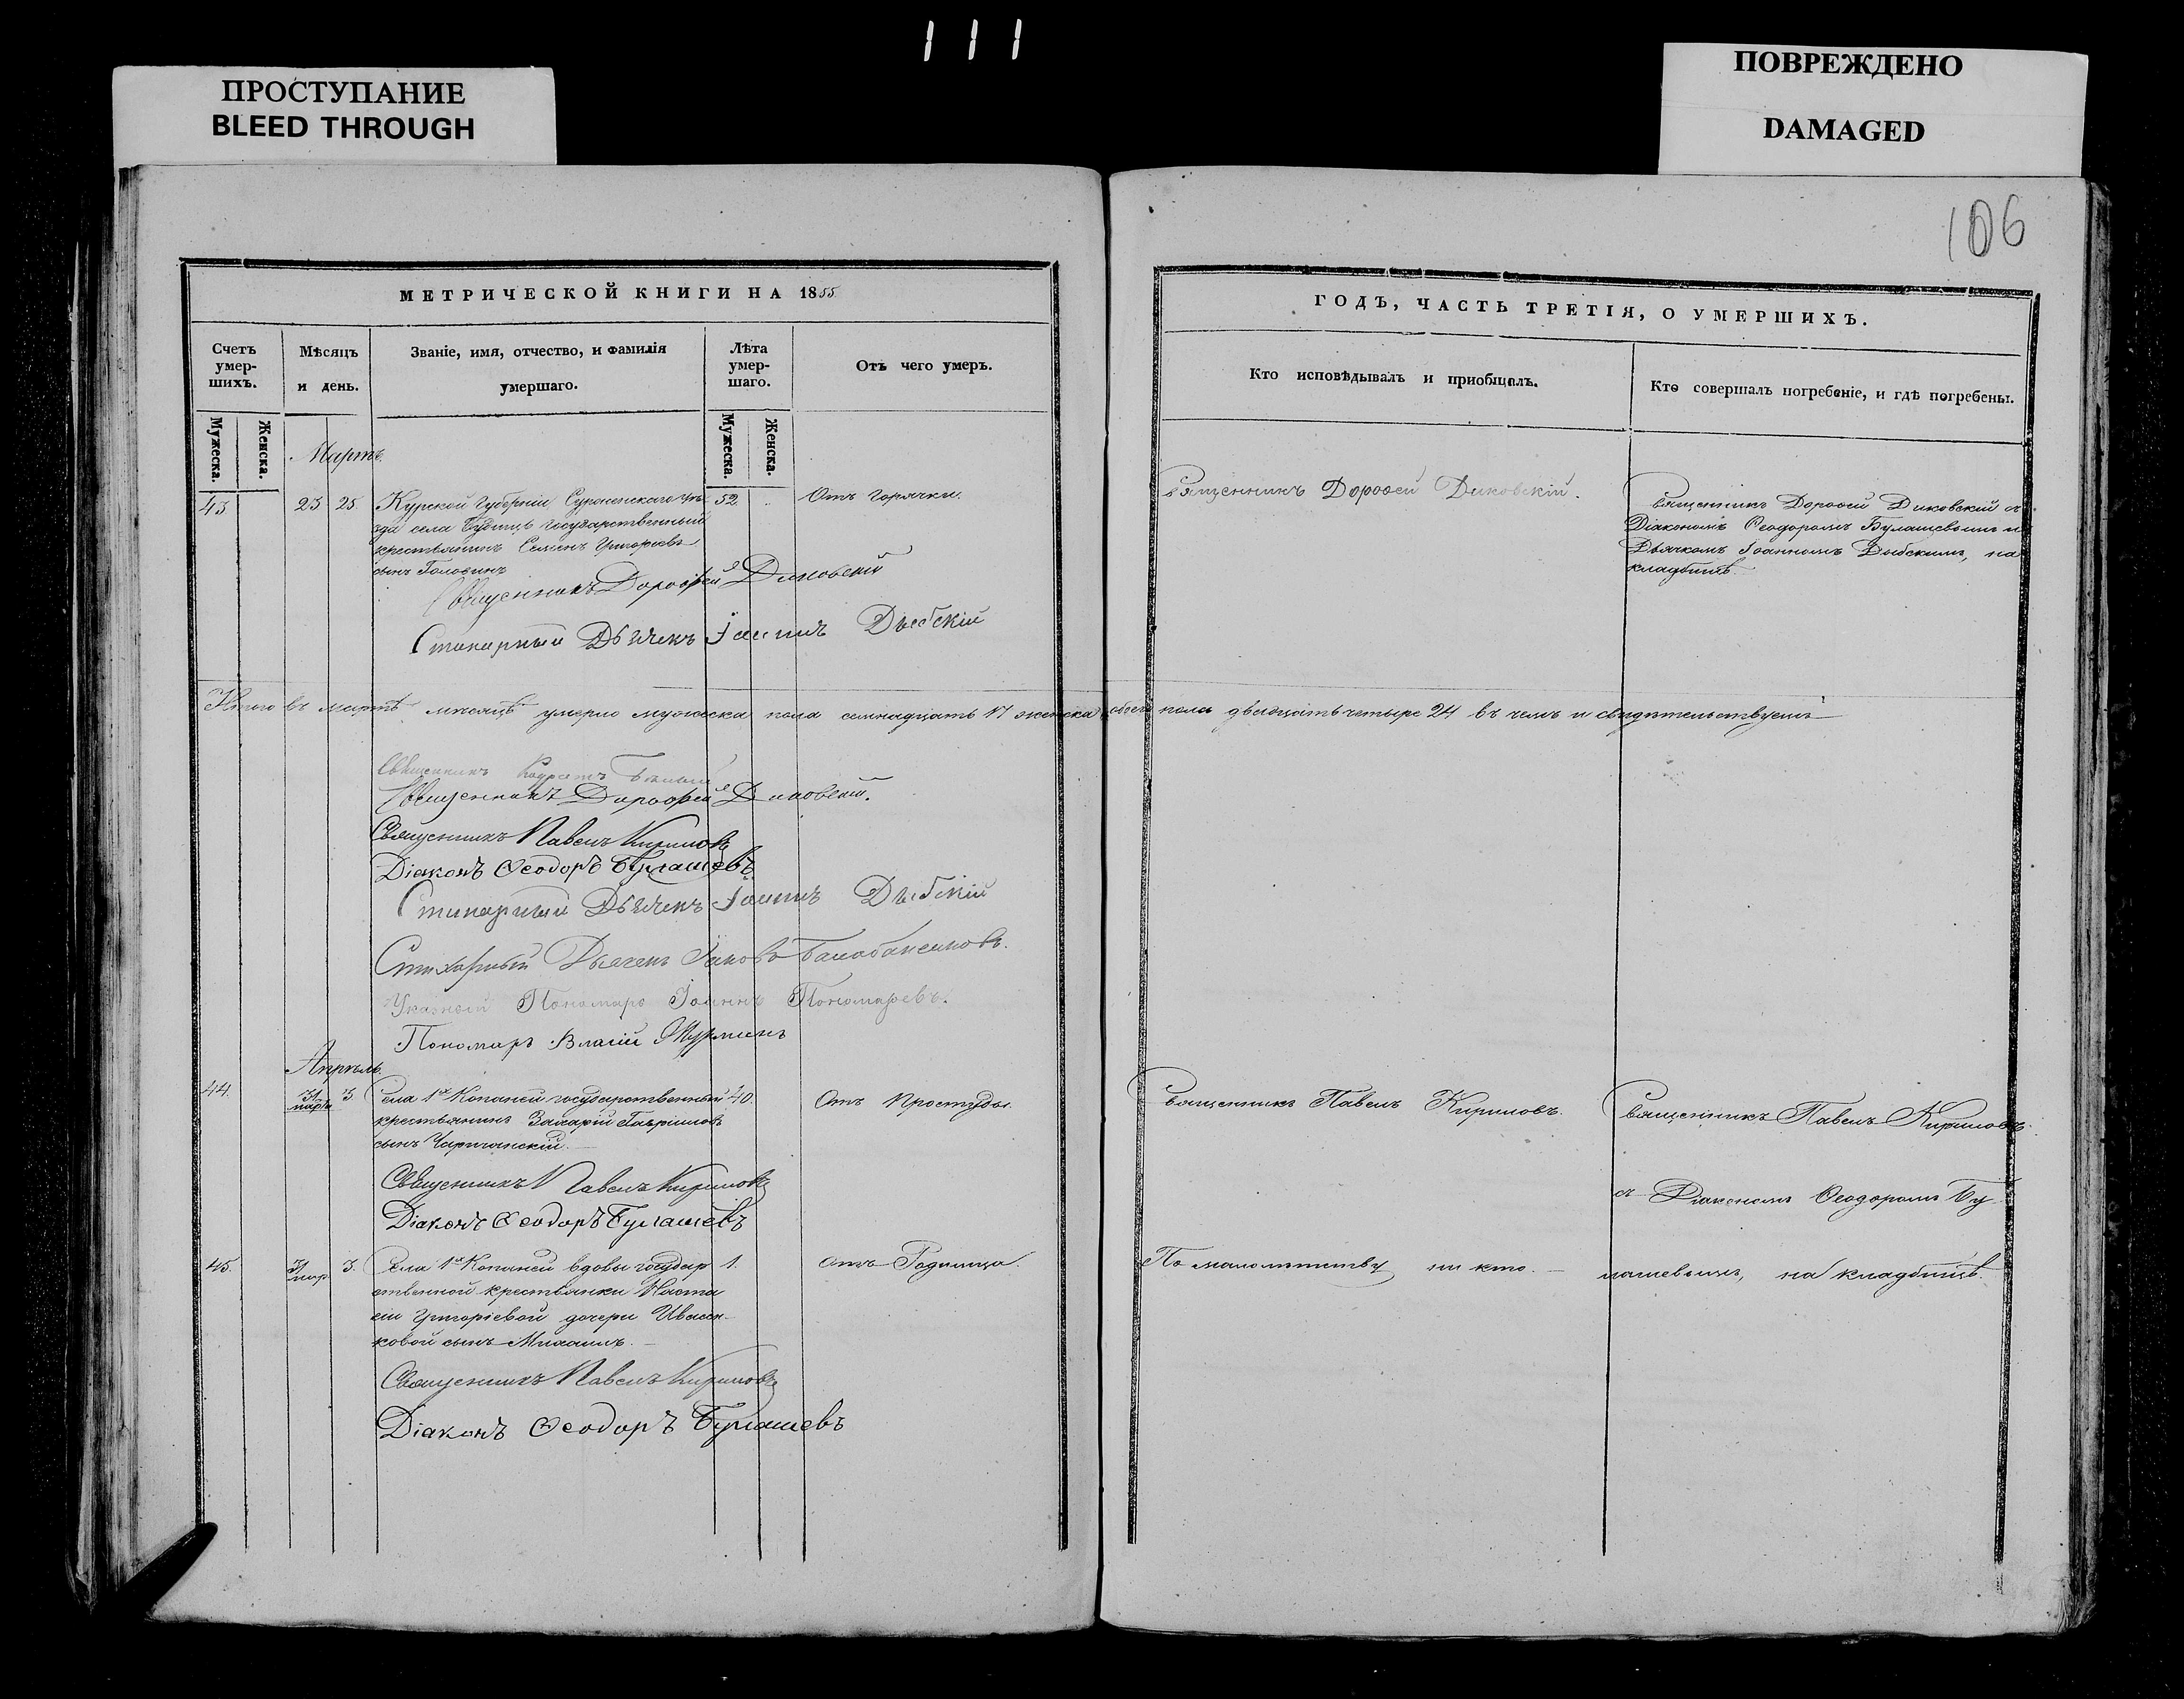 111
ПРОСТУПАНИЕ
BLEED THROUGH
ПОВРЕЖДЕНО
DAMAGED
106
МЕТРИЧЕСКОЙ КНИГИ НА 1855
Счетъ умер-шихъ.
Мѣсяцъ и день.
Званіе, имя, отчество, и фамилія умершаго.
Лѣта умер-шаго.
Отъ чего умеръ.
Мужеска.
Женска.
Мужеска.
Женска.
ГОДЪ, ЧАСТЬ ТРЕТІЯ, О УМЕРШИХЪ.
Кто исповѣдывалъ и пріобщалъ.
Кто совершалъ погребеніе, и гдѣ погребены.
Мартъ.
43 23 25 Курской Губерніи уѣ- 52. Отъ горячки.
зда села государственный
крестьянинъ Семенъ Григорьевъ
сынъ Головинъ
Священникъ Дорофей Диковскій
Стихарный Дьячекъ Іоаннъ Дыбскій
Священникъ Дороѳей Диковскій.
Священникъ Дороѳей Диковскій съ
Діакономъ Ѳеодоромъ Булашевымъ и
Дьячкомъ Іоанномъ Дыбскимъ, на
кладбищѣ.
Итого въ мартѣ мѣсяцѣ умерло мужеска пола семнадцать 17 женска пола двадцать четыре 24 въ чемъ и свидѣтельствуемъ
Священникъ
Священникъ Дорофей Диковскій.
Священникъ Павелъ Кириловъ
Діаконъ Ѳеодоръ Булашевъ
Стихарный Дьячекъ Іоаннъ Дыбскій
Стихарный Дьячекъ Іаковъ
Указной Пономарь Іоаннъ Пономаревъ.
Пономарь Власій
Апрѣль.
44. 31 марта 3. Села 1й Копаней государственный 40. Отъ простуды.
крестьянинъ Захарій Гавріиловъ
сынъ Чаричанскій.
Священникъ Павелъ Кириловъ
Діаконъ Ѳеодоръ Булашевъ
Священникъ Павелъ Кириловъ.
Священникъ Павелъ Кириловъ
съ Діакономъ Ѳеодоромъ Бу
45. 31 мар 3. Села 1й Копаней вдовы государ 1. Отъ Родимца.
ственной крестьянки Наста
сіи Григоріевой дочери Ивашен-
ковой сынъ Михаилъ.
Священникъ Павелъ Кириловъ
Діаконъ Ѳеодоръ Булашевъ
По малолѣтству ни кто.
лашевымъ, на кладбищѣ.